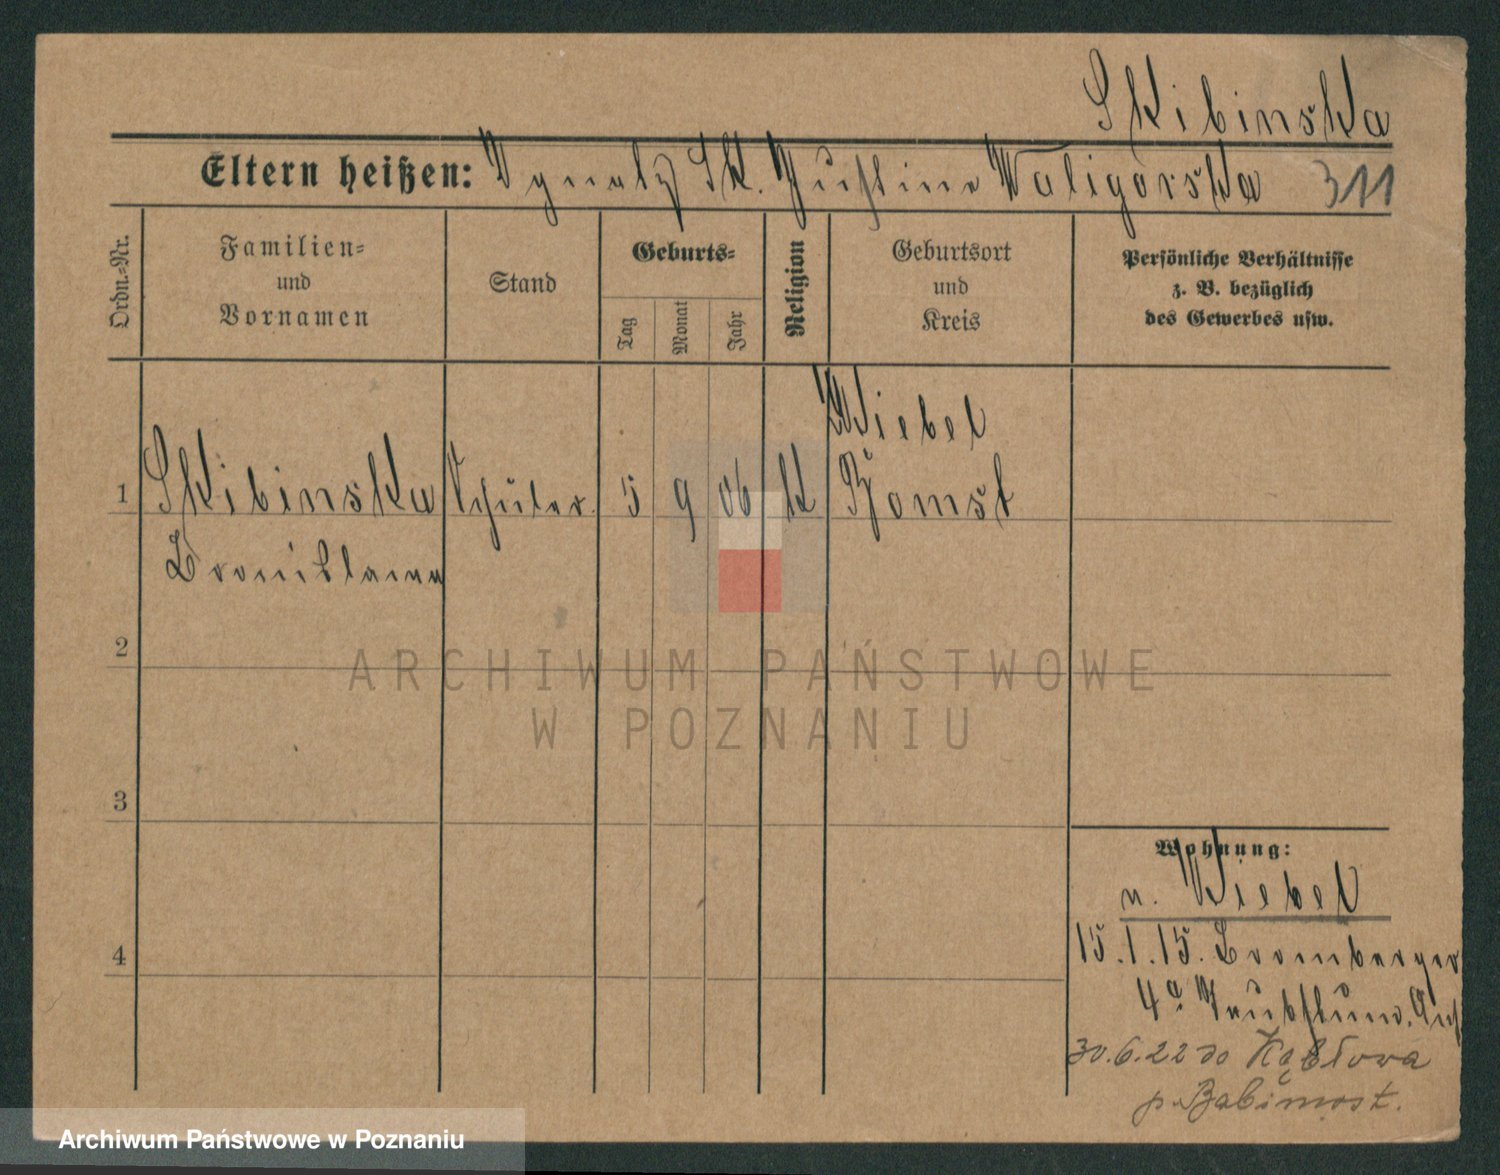 Skibinska
Eltern heißen: Ignatz Sk. Justine Waligorska 311
Ordn.-Nr.
Familien-
und
Vornamen
Stand
Geburts-
Tag
Monat
Jahr
Religion
Geburtsort
und
Kreis
Persönliche Verhältnisse
z. B. bezüglich
des Gewerbes usw.
Wiebel
1 Skibinska Schüler. 5 9 06 K Bomst
Bronislawa
2
ARCHIWUM PAŃSTWOWE
W POZNANIU
3
Wohnung:
n. Wiebel
4
15.1.15. Bromberger
4a Taubstumm. Anst
30.6.22 do Kębłowa
p. Babimost.
Archiwum Państwowe w Poznaniu